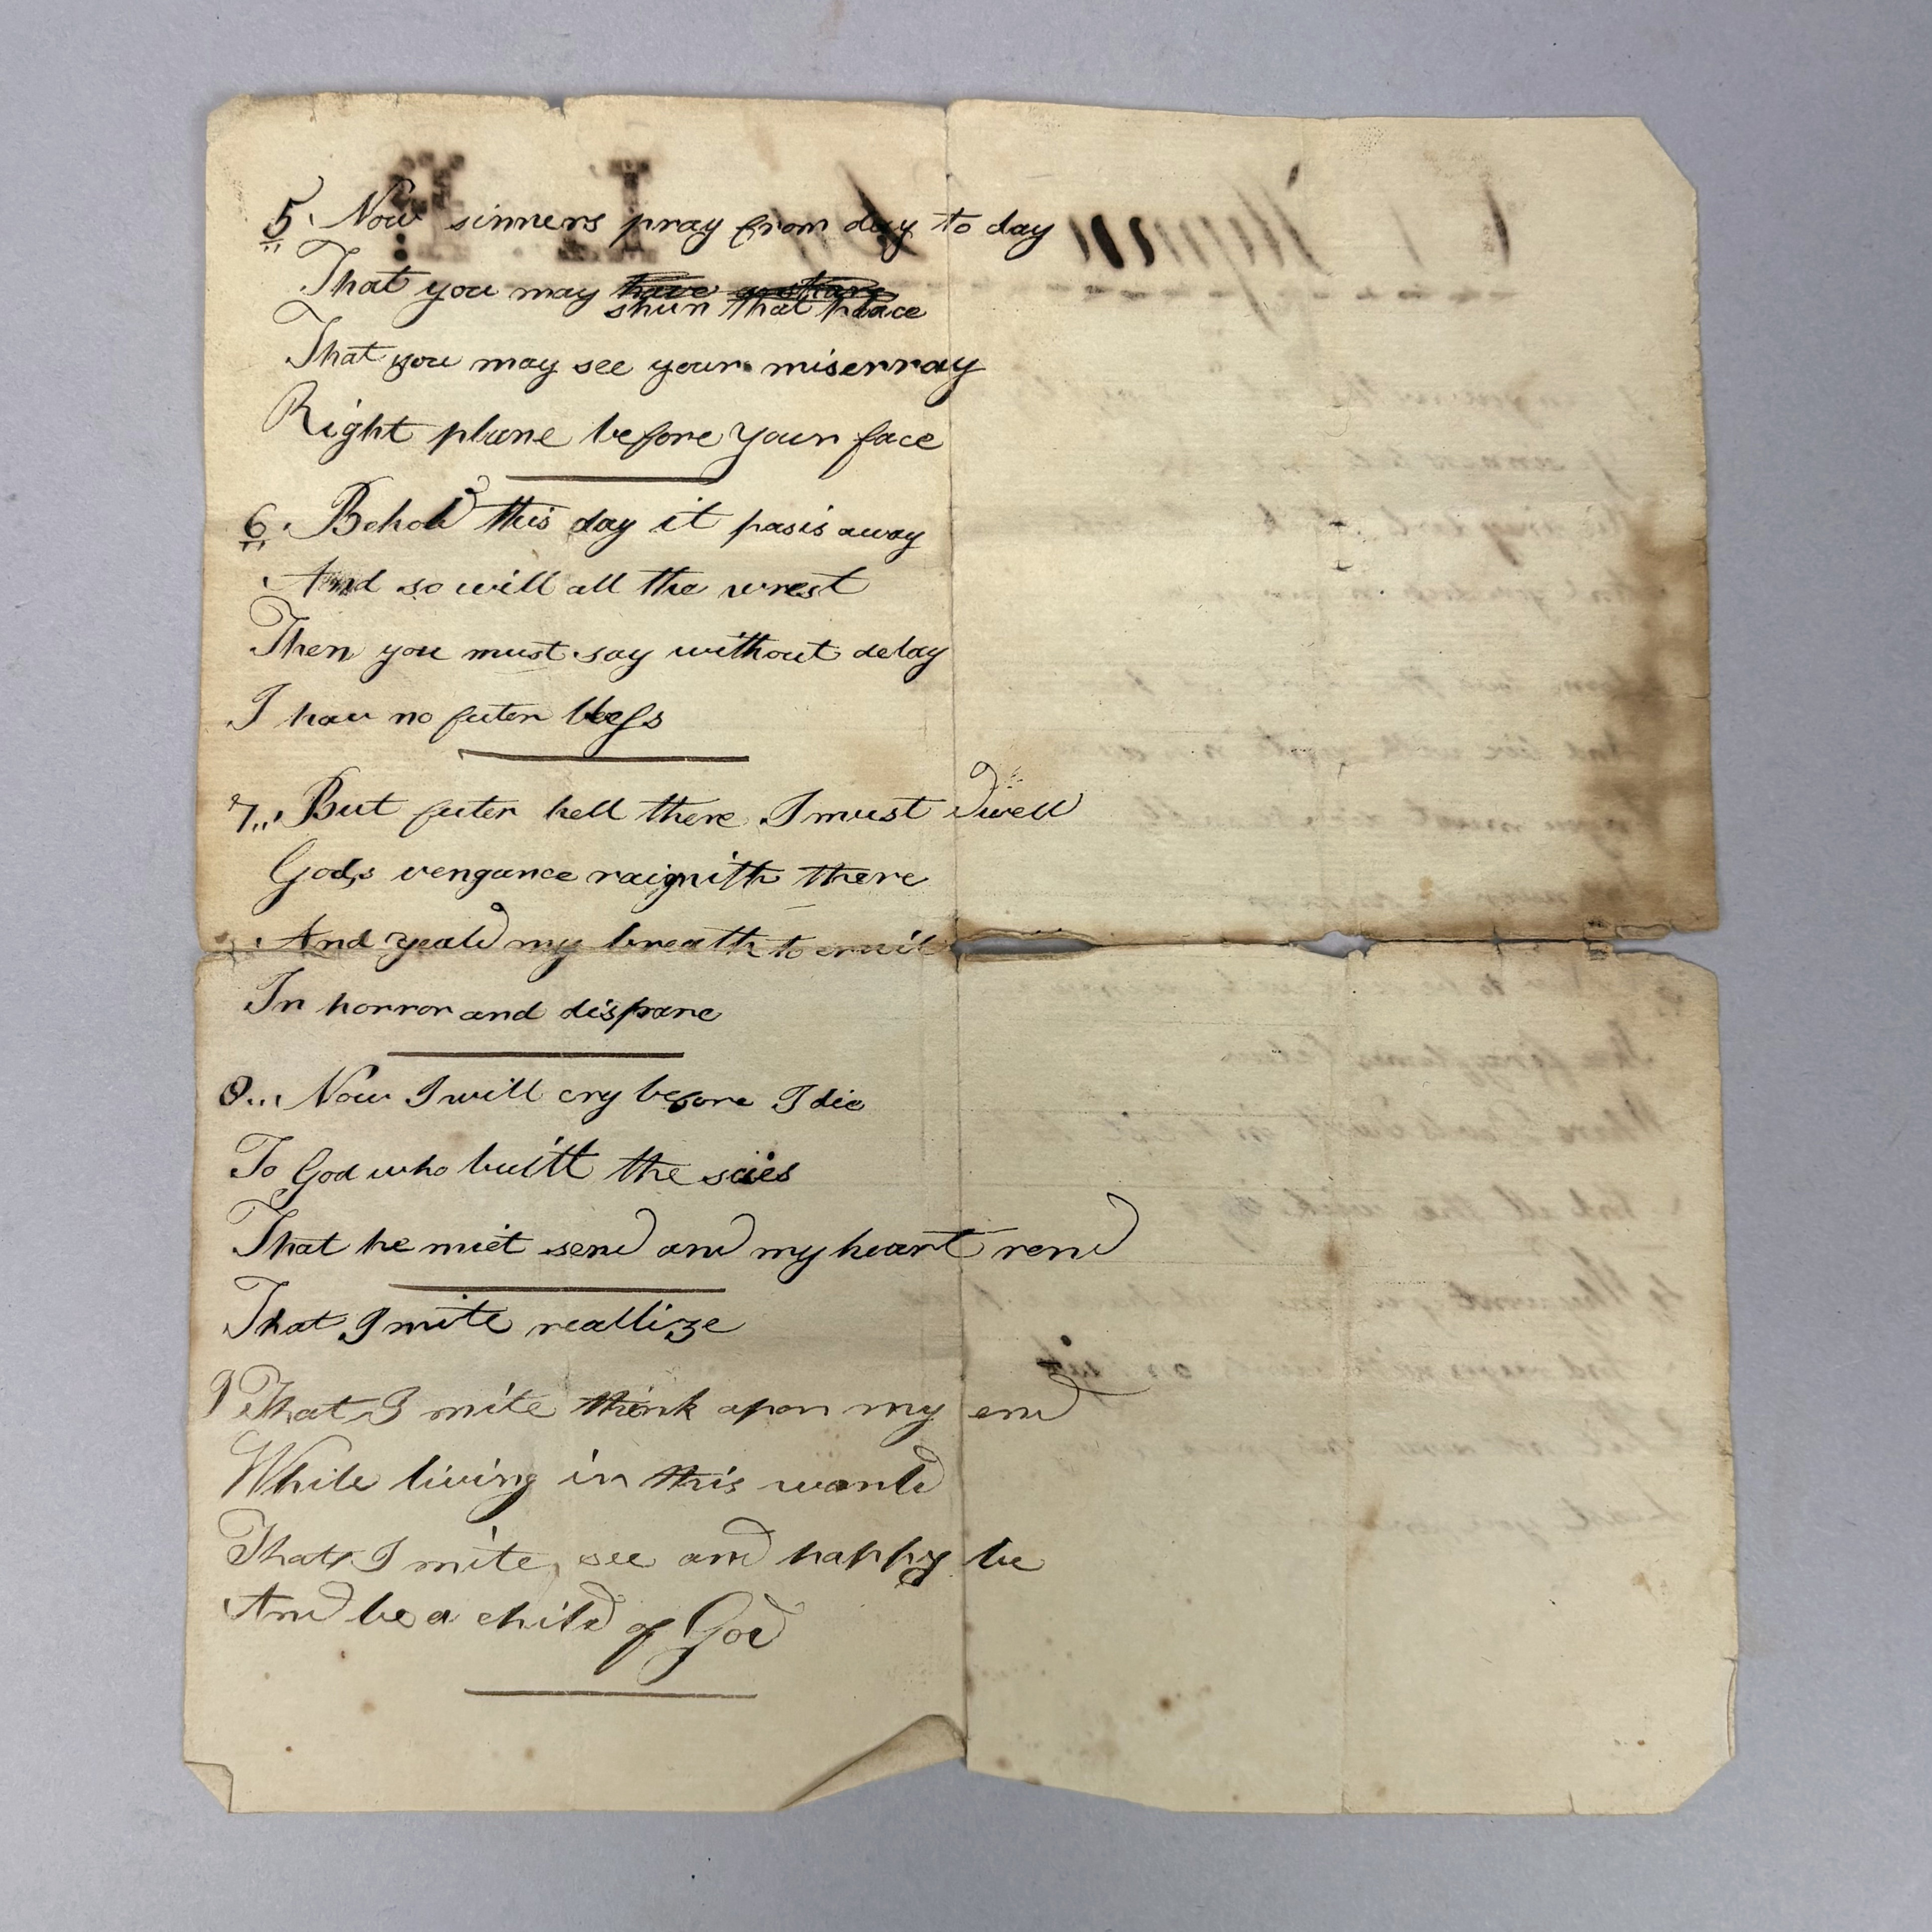 5. Now sinners pray from day to day
That you may
shun that place
That you may see your miserray
Right plane before your face
6. Behold this day it pasis away
And so will all the wrest
Then you must say without delay
I hav no futer bless
7. But futer hell there I must dwell
Gods vengance raignith there
And yeald my breath to
In horror and dispare
8. Now I will cry before I die
To God who built the scies
That he miet send and my heart rend
That I mite reallize
9 That I mite think apon my end
While living in this world
That I mite see and happy be
And be a child of God